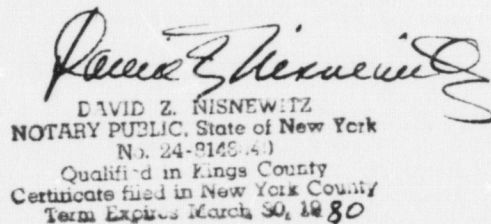 DAVID Z. NISNEWITZ
NOTARY PUBLIC, State of New York
No. 24-8148
Qualified in Kings County
Certificate filed in New York County
Term Expires March 30, 1980